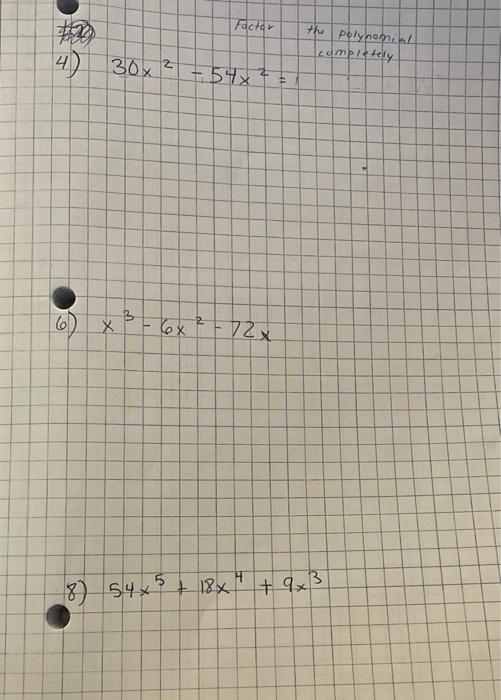 Factor the polynomial
completely
4) 30x² - 54x² =
6) x³ - 6x² - 72x
8) 54x⁵ + 18x⁴ + 9x³